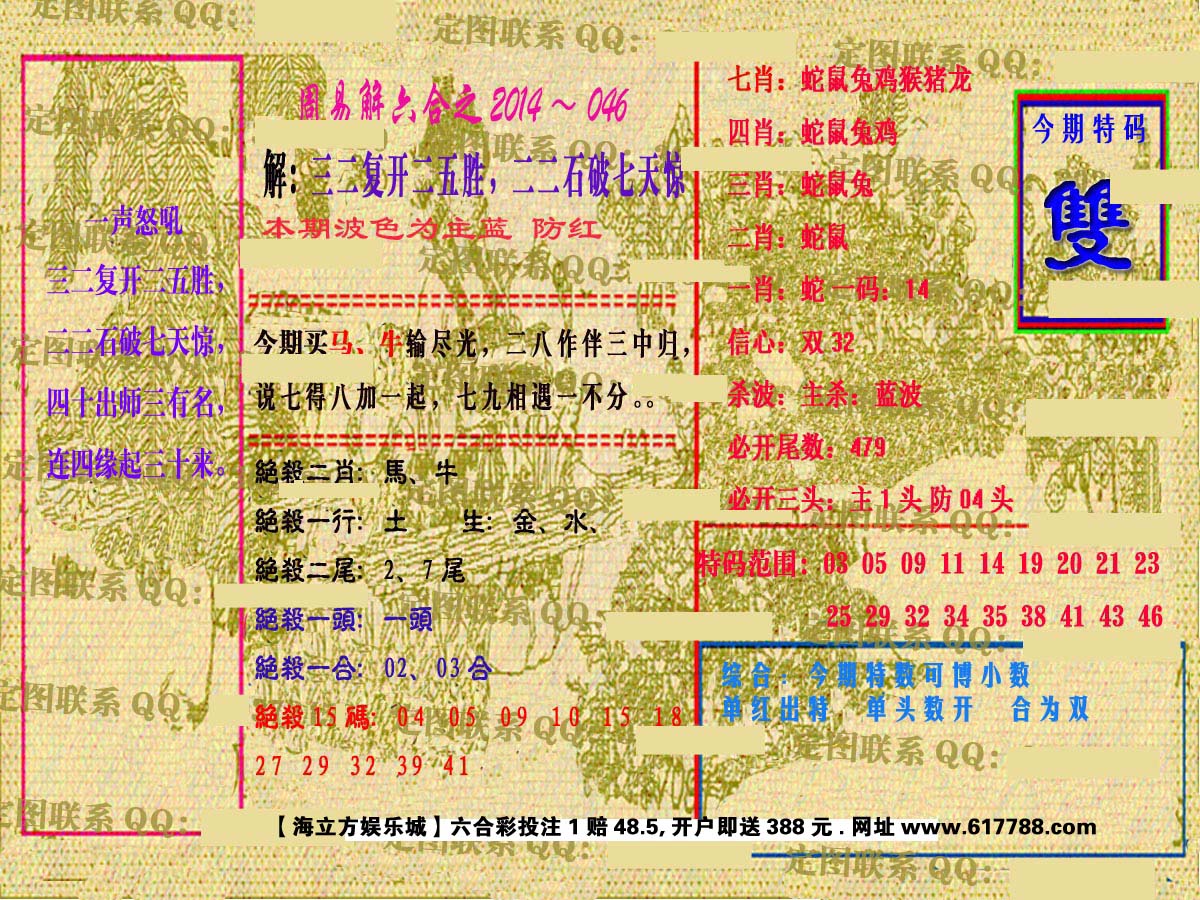 定图联系 QQ:
定图联系 QQ:
定图联系 QQ:
周易解六合之 2014～046
解：三二复开二五胜，二二石破七天惊
本期波色为主蓝 防红
一声怒吼
三二复开二五胜，
二二石破七天惊，
四十出师三有名，
连四缘起三十来。
今期买马、牛输尽光，二八作伴三中归，
说七得八加一起，七九相遇一不分。。
絕殺二肖：馬、牛
絕殺一行：土 生：金、水、
絕殺二尾：2、7 尾
絕殺一頭：一頭
絕殺一合：02、03 合
絕殺 15 碼：04 05 09 10 15 18
27 29 32 39 41
七肖：蛇鼠兔鸡猴猪龙
四肖：蛇鼠兔鸡
三肖：蛇鼠兔
二肖：蛇鼠
一肖：蛇 一码：14
信心：双 32
杀波：主杀：蓝波
必开尾数：479
必开三头：主 1 头 防 04 头
今期特码
雙
特码范围：03 05 09 11 14 19 20 21 23
25 29 32 34 35 38 41 43 46
综合：今期特数可博小数
单红出特 单头数开 合为双
定图联系 QQ:
定图联系 QQ:
定图联系 QQ:
【海立方娱乐城】六合彩投注 1 赔 48.5, 开户即送 388 元 . 网址 www.617788.com
定图联系 QQ: